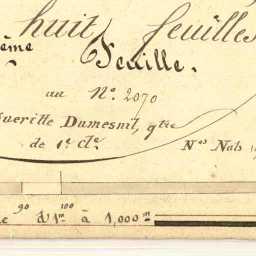 huit feuilles
ème
Feuille.
au N° 2070
ueritte Dumesnil, gtre
de 1e Cle
Nos Nats
90 100
d'1m à 1,000m